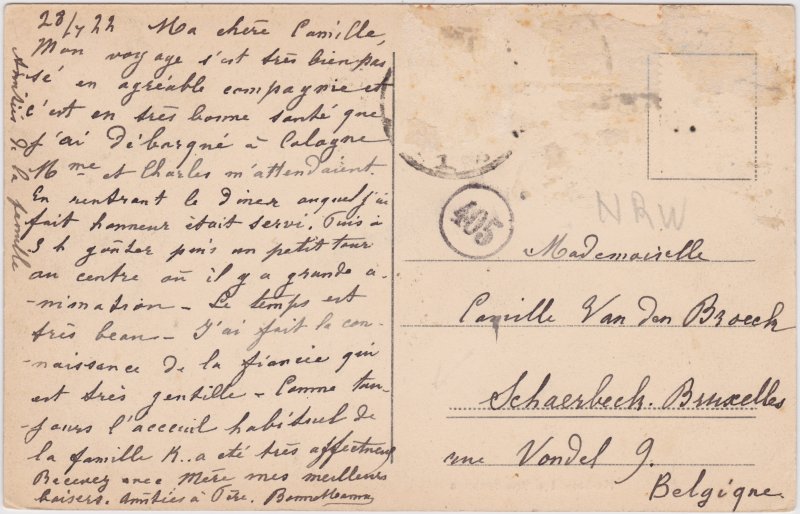 28/7 22 Ma chère Camille,
Mon voyage s'est très bien pas
sé en agréable compagnie et
c'est en très bonne santé que
j'ai débarqué à Cologne
Mme et Charles m'attendaient.
En rentrant le diner auquel j'ai
fait honneur était servi. Puis à
3 h goûter puis un petit tour
au centre où il y a grande a-
-nimation - Le temps est
très beau - J'ai fait la con-
-naissance de la fiancée qui
est très gentille - Comme tou-
jours l'acceuil habituel de
la famille K.. a été très affectueux
Recevez avec Mère mes meilleurs
baisers. Amitiés à Père. BonneMaman
Amitiés de la famille
405
NRW
Mademoiselle
Camille Van den Broeck
Schaerbeck. Bruxelles
rue Vondel 9.
Belgique.